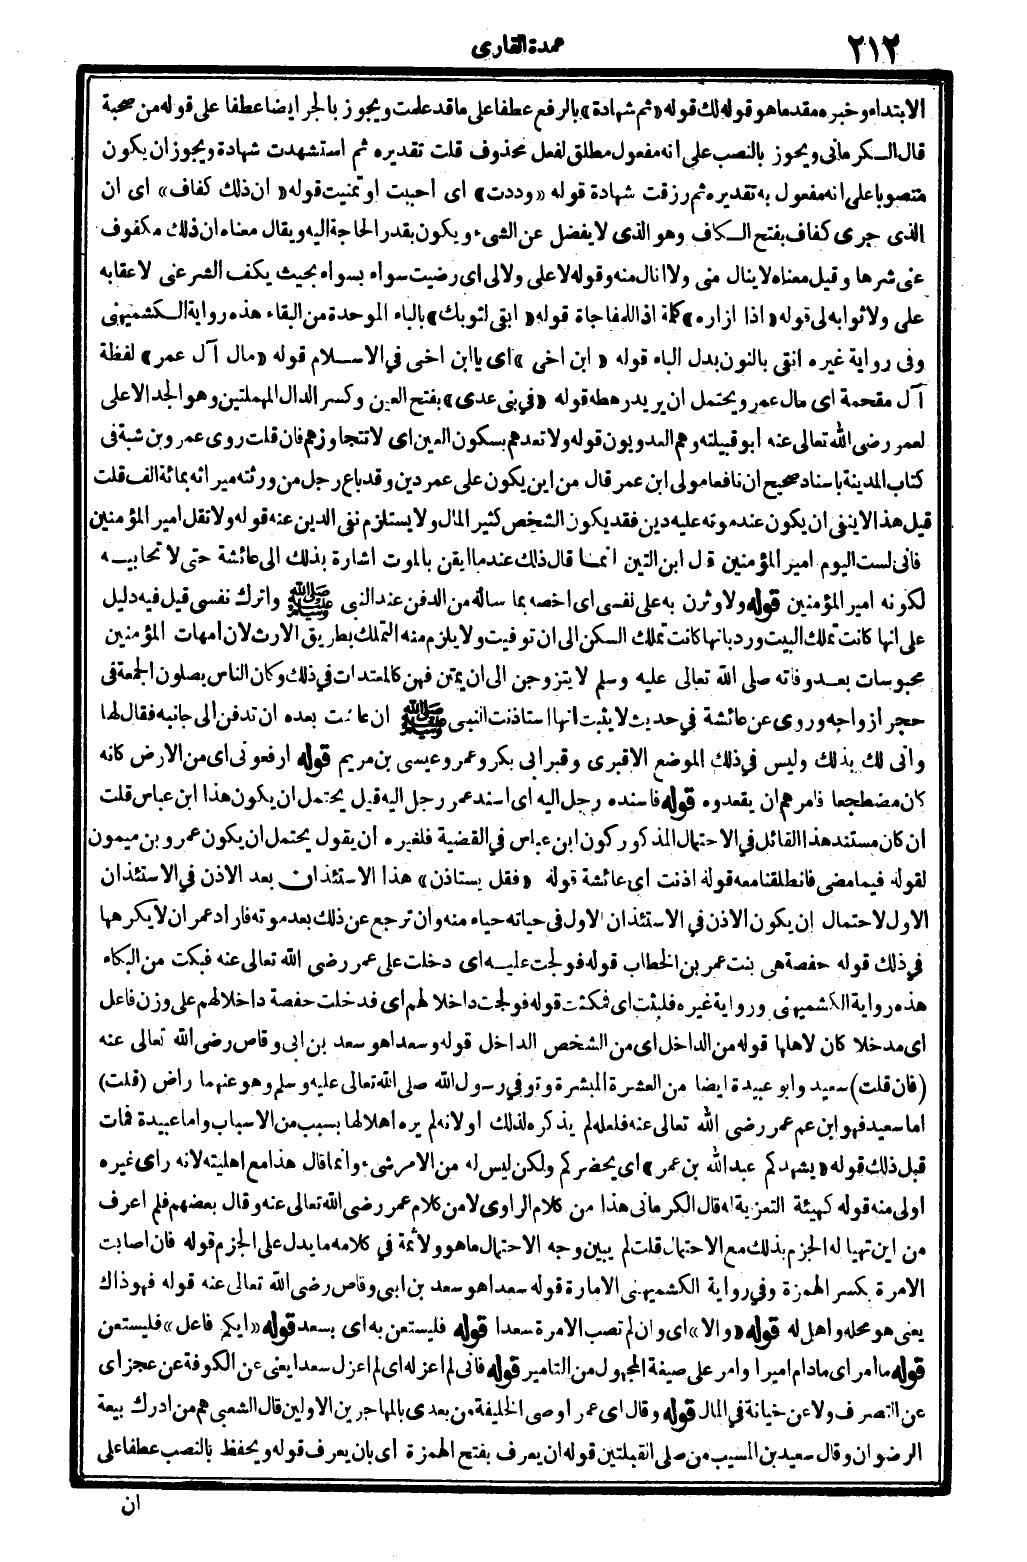 ٢١٢
عمدة القاري
الابتداء وخبره مقدما هو قوله لك قوله «ثم شهادة» بالرفع عطفا على ما قد علمت ويجوز بالجر ايضا عطفا على قوله من صحبة
قال الكرماني ويجوز بالنصب على انه مفعول مطلق لفعل محذوف قلت تقديره ثم استشهدت شهادة ويجوز ان يكون
منصوبا على انه مفعول به تقديره ثم رزقت شهادة قوله «وددت» اى أحببت او تمنيت قوله «ان ذلك كفاف» اى ان
الذى جرى كفاف بفتح الكاف وهو الذى لا يفضل عن الشىء ويكون بقدر الحاجة اليه ويقال معناه ان ذلك مكفوف
عنى شرها وقيل معناه لا ينال منى ولا انال منه وقوله لا على ولا لى اى رضيت سواء بسواء بحيث يكف الشر عنى لا عقابه
على ولا ثوابه لى قوله «اذا ازاره» كلمة اذا للمفاجاة قوله «ابقى لثوبك» بالباء الموحدة من البقاء هذه رواية الكشميهنى
وفى رواية غيره انقى بالنون بدل الباء قوله «ابن اخى» اى يا ابن اخى في الاسلام قوله «مال آل عمر» لفظة
آل مقحمة اى مال عمر ويحتمل ان يريد رهطه قوله «في بنى عدى» بفتح العين وكسر الدال المهملتين وهو الجد الاعلى
لعمر رضى الله تعالى عنه أبو قبيلته وهم العدويون قوله ولا تعدهم بسكون العين اى لا تتجاوزهم فان قلت روى عمر وبن شبة فى
كتاب المدينة باسناد صحيح ان نافعا مولى ابن عمر قال من اين يكون على عمر دين وقد باع رجل من ورثته ميراثه بمائة الف قلت
قيل هذا لا ينفى ان يكون عند موته عليه دين فقد يكون الشخص كثير المال ولا يستلزم نفى الدين عنه قوله ولا تقل امير المؤمنين
فانى لست اليوم امير المؤمنين قال ابن التين انما قال ذلك عندما ايقن بالموت اشارة بذلك الى عائشة حتى لا تحابيه
لكونه امير المؤمنين قوله ولاوثرن به على نفسى اى اخصه بما سأله من الدفن عند النبى ﷺ واترك نفسى قيل فيه دليل
على انها كانت تملك البيت ورد بانها كانت تملك السكن الى ان توفيت ولا يلزم منه التملك بطريق الارث لان امهات المؤمنين
محبوسات بعد وفاته صلى الله تعالى عليه وسلم لا يتزوجن الى ان يمتن فهن كالمعتدات في ذلك وكان الناس يصلون الجمعة فى
حجر ازواجه وروى عن عائشة في حديث لا يثبت انها استاذنت النبى ﷺ ان عاشت بعده ان تدفن الى جانبه فقال لها
وانى لك بذلك وليس في ذلك الموضع الا قبرى وقبر ابى بكر وعمر وعيسى بن مريم قوله ارفعونى اى من الارض كانه
كان مضطجعا فامرهم ان يقعدوه قوله فاسنده رجل اليه اى اسند عمر رجل اليه قيل يحتمل ان يكون هذا ابن عباس قلت
ان كان مستند هذا القائل في الاحتمال المذكور كون ابن عباس في القضية فلغيره أن يقول يحتمل ان يكون عمرو بن ميمون
لقوله فيما مضى فانطلقنا معه قوله اذنت اى عائشة قوله «فقل يستاذن» هذا الاستئذان بعد الاذن في الاستئذان
الاول لاحتمال ان يكون الاذن في الاستئذان الاول في حياته حياء منه وان ترجع عن ذلك بعد موته فاراد عمر ان لا يكرهها
في ذلك قوله حفصة هى بنت عمر بن الخطاب قوله فولجت عليه اى دخلت على عمر رضى الله تعالى عنه فبكت من البكاء
هذه رواية الكشميهنى ورواية غيره فلبثت اى فمكثت قوله فولجت داخلا لهم اى فدخلت حفصة داخلا لهم على وزن فاعل
اى مدخلا كان لاهلها قوله من الداخل اى من الشخص الداخل قوله وسعدا هو سعد بن ابى وقاص رضى الله تعالى عنه
(فان قلت) سعيد وابو عبيدة ايضا من العشرة المبشرة وتوفي رسول الله صلى الله تعالى عليه وسلم وهو عنهما راض (قلت)
اما سعيد فهو ابن عم عمر رضى الله تعالى عنه فلعله لم يذكره لذلك اولانه لم يره اهلا لها بسبب من الاسباب واما عبيدة فمات
قبل ذلك قوله «يشهدكم عبد الله بن عمر» اى يحضركم ولكن ليس له من الامر شىء وانما قال هذا مع اهليته لانه راى غيره
اولى منه قوله كهيئة التعزية له قال الكرمانى هذا من كلام الراوى لا من كلام عمر رضى الله تعالى عنه وقال بعضهم فلم اعرف
من اين تهيا له الجزم بذلك مع الاحتمال قلت لم يبين وجه الاحتمال ما هو ولا ثمة في كلامه ما يدل على الجزم قوله فان اصابت
الامرة بكسر الهمزة وفي رواية الكشميهنى الامارة قوله سعدا هو سعد بن ابى وقاص رضى الله تعالى عنه قوله فهو ذاك
يعنى هو محله واهل له قوله «والا» اى وان لم تصب الامرة سعدا قوله فليستعن به اى بسعد قوله «ايكم فاعل» فليستعن
قوله ما أمر اى مادام اميرا وامر على صيغة المجهول من التامير قوله فانى لم اعزله اى لم اعزل سعدا يعنى عن الكوفة عن عجز اى
عن التصرف ولا عن خيانة في المال قوله وقال اى عمر اوصى الخليفة من بعدى بالمهاجرين الاولين قال الشعبى هم من ادرك بيعة
الرضوان وقال سعيد بن المسيب من صلى القبلتين قوله ان يعرف بفتح الهمزة اى بان يعرف قوله ويحفظ بالنصب عطفا على
ان